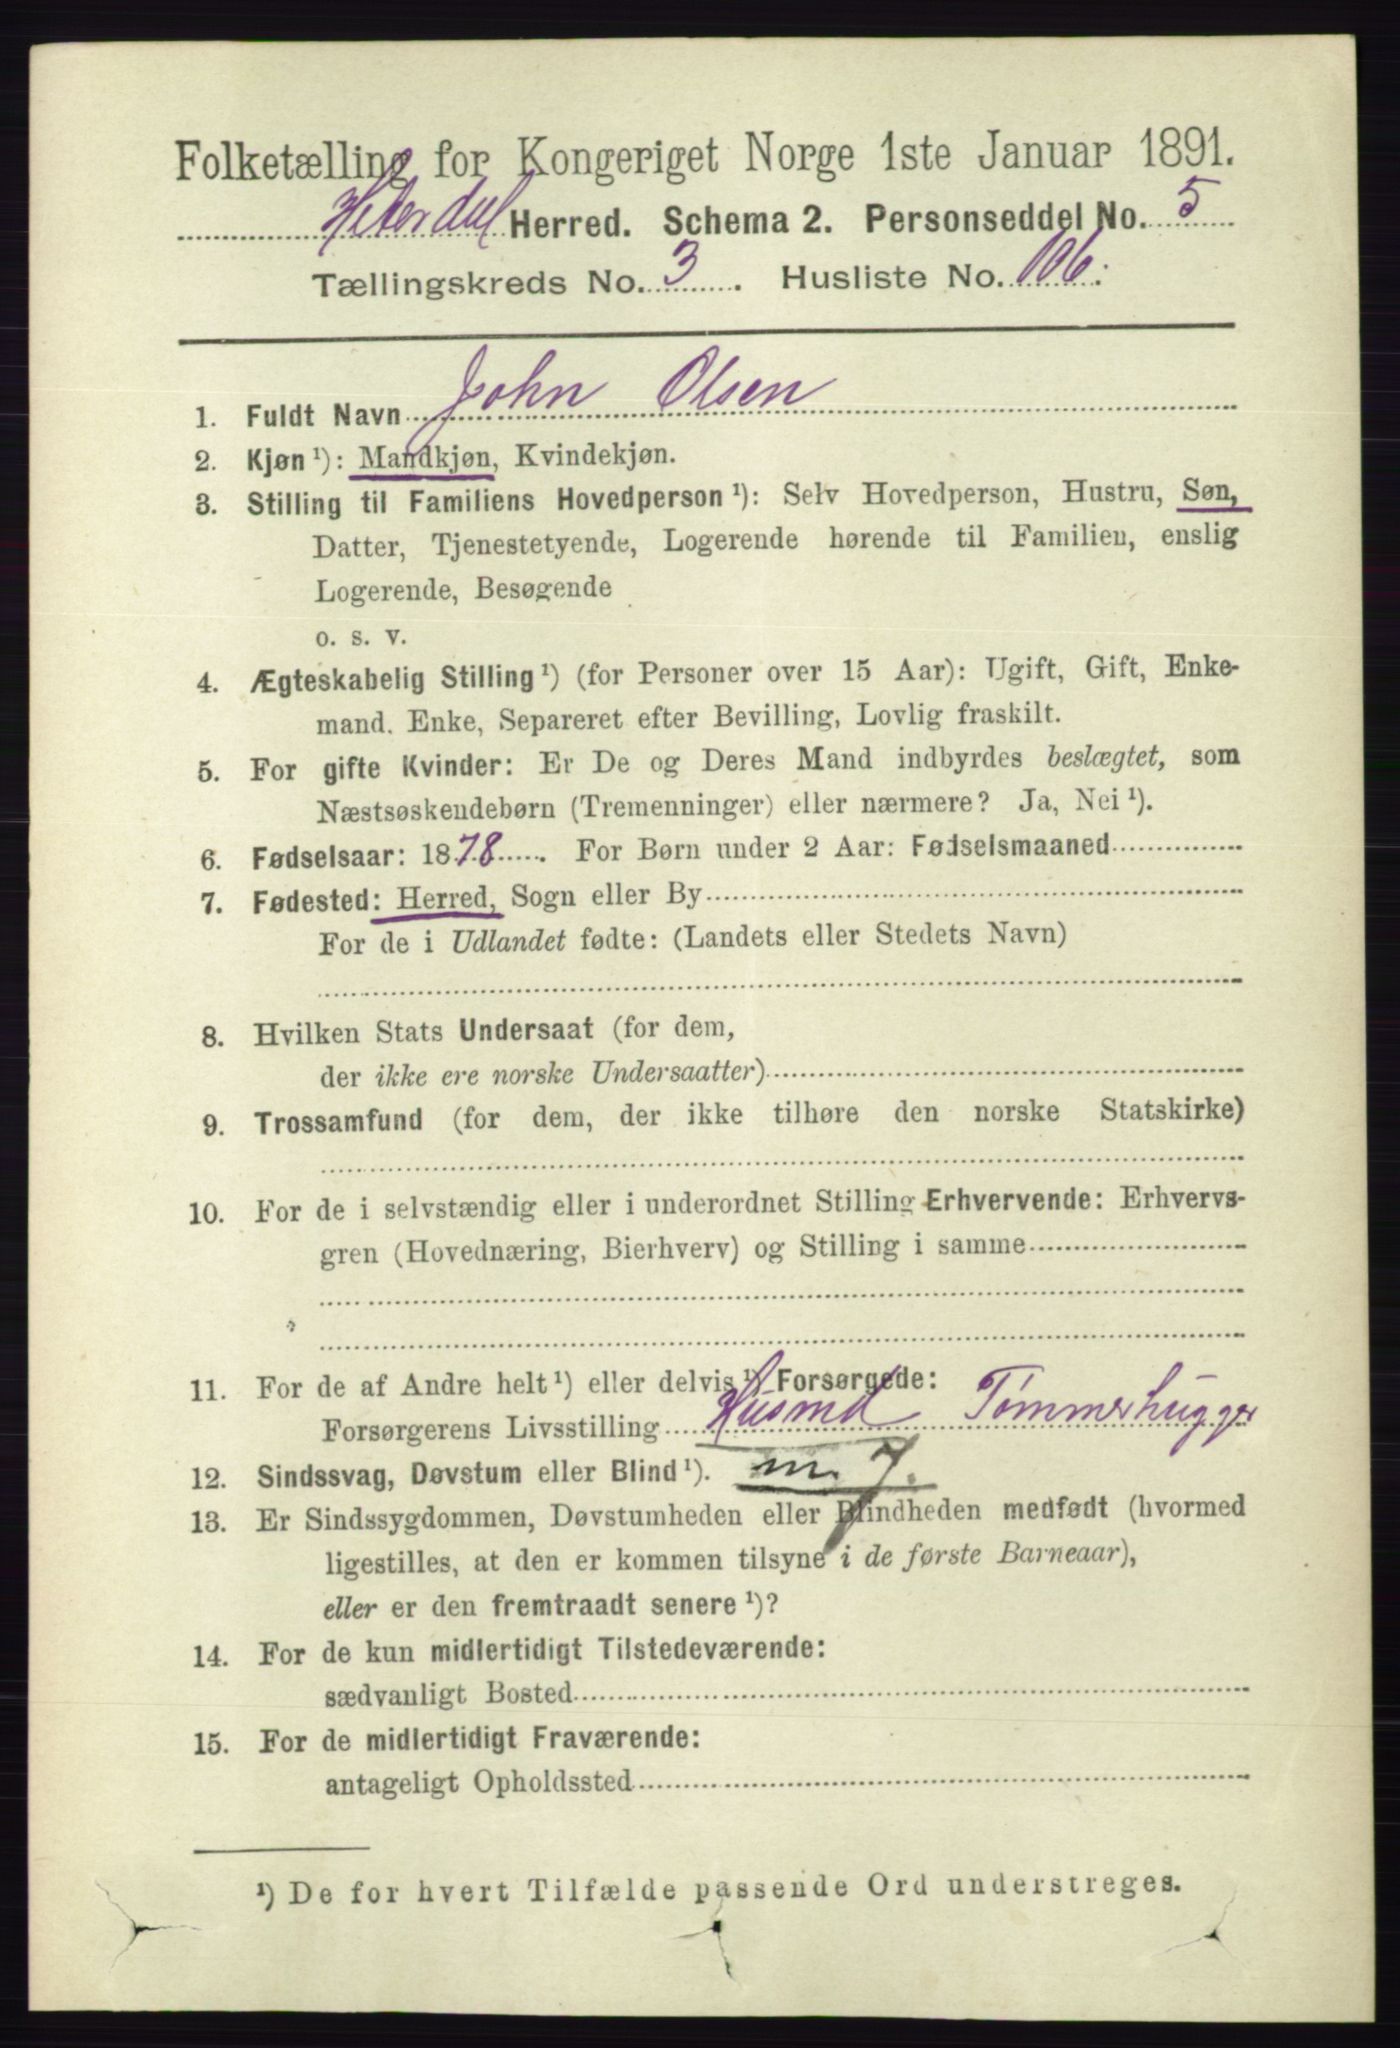 Folketælling for Kongeriget Norge 1ste Januar 1891.
Hiterdal Herred. Schema 2. Personseddel No. 5
Tællingskreds No. 3. Husliste No. 106.
1. Fuldt Navn John Olsen
2. Kjøn ¹): Mandkjøn, Kvindekjøn.
3. Stilling til Familiens Hovedperson ¹): Selv Hovedperson, Hustru, Søn,
Datter, Tjenestetyende, Logerende hørende til Familien, enslig
Logerende, Besøgende
o. s. v.
4. Ægteskabelig Stilling ¹) (for Personer over 15 Aar): Ugift, Gift, Enke-
mand, Enke, Separeret efter Bevilling, Lovlig fraskilt.
5. For gifte Kvinder: Er De og Deres Mand indbyrdes beslægtet, som
Næstsøskendebørn (Tremenninger) eller nærmere? Ja, Nei ¹).
6. Fødselsaar: 1878. For Børn under 2 Aar: Fødselsmaaned
7. Fødested: Herred, Sogn eller By
For de i Udlandet fødte: (Landets eller Stedets Navn)
8. Hvilken Stats Undersaat (for dem,
der ikke ere norske Undersaatter)
9. Trossamfund (for dem, der ikke tilhøre den norske Statskirke)
10. For de i selvstændig eller i underordnet Stilling Erhvervende: Erhvervs-
gren (Hovednæring, Bierhverv) og Stilling i samme
11. For de af Andre helt ¹) eller delvis ¹) Forsørgede:
Forsørgerens Livsstilling Husmd Tømmerhugger
12. Sindssvag, Døvstum eller Blind ¹). m. 7.
13. Er Sindssygdommen, Døvstumheden eller Blindheden medfødt (hvormed
ligestilles, at den er kommen tilsyne i de første Barneaar),
eller er den fremtraadt senere ¹)?
14. For de kun midlertidigt Tilstedeværende:
sædvanligt Bosted
15. For de midlertidigt Fraværende:
antageligt Opholdssted
¹) De for hvert Tilfælde passende Ord understreges.